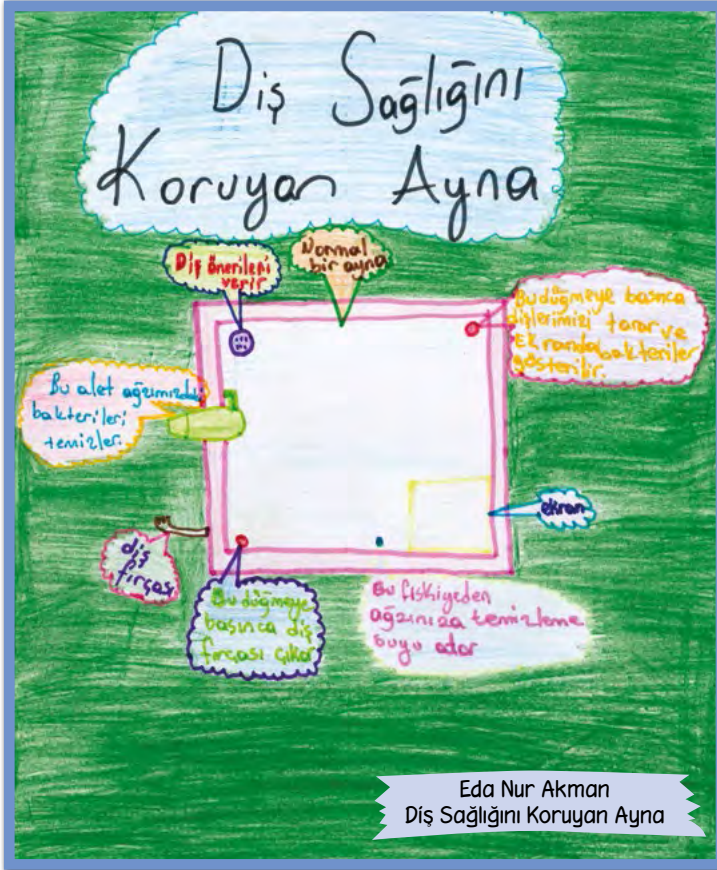 Diş Sağlığını
Koruyan Ayna
Diş önerileri
verir
Normal
bir ayna
Bu düğmeye basınca
dişlerimizi tarar ve
Ekranda bakteriler
gösterilir.
Bu alet ağzımızdaki
bakterileri
temizler.
ekran
diş
fırçası
Bu düğmeye
basınca diş
fırçası çıkar
Bu fıskiyeden
ağzınıza temizleme
suyu
Eda Nur Akman
Diş Sağlığını Koruyan Ayna